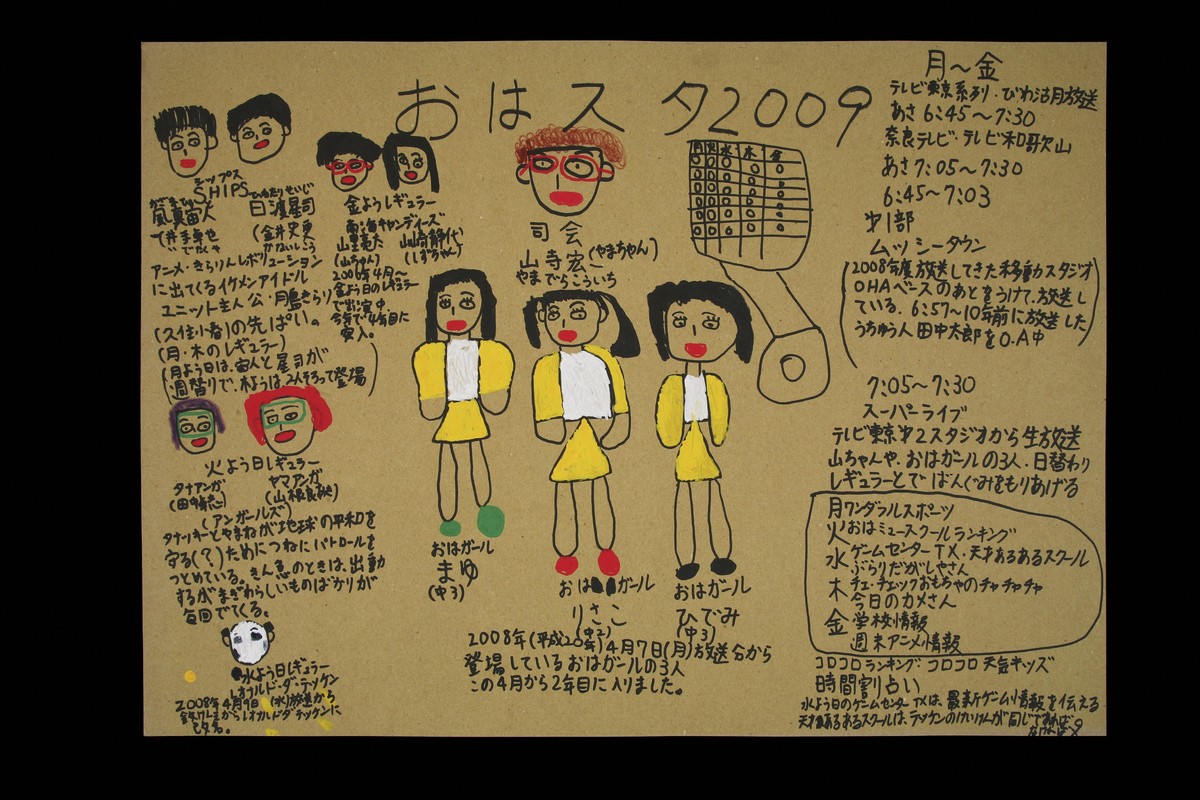 おはスタ2009
シップス
SHIPS
風真宙人
日渡星司
(井手卓也
(金井史更
アニメ・きらりんレボリューション
に出てくるイケメンアイドル
ユニット主人公・月島きらり
(久住小春)の先ぱい。
(月・木のレギュラー)
(月よう日は、宙人と星司が
週替りで、木ようは、2人そろって登場)
金ようレギュラー
南海キャンディーズ
山里亮太
山崎静代
(山ちゃん)
(しずちゃん)
2006年4月〜
金よう日のレギュラー
で出演中
今年で4年目に
突入。
司会
山寺宏一(やまちゃん)
やまでらこういち
月 火 水 木 金
火よう日レギュラー
タナアンガ
ヤマアンガ
(田中卓志)
(山根良顕)
(アンガールズ)
タナッキーとやまねが地球の平和を
守る(?)ためにつねにパトロールを
つとめている。きん急のときは、出動
するがまぎわらしいものばかりが
毎回でてくる。
水よう日レギュラー
レオナルド・ダ・テッケン
2008年4月9日(水)放送から
からレオナルドダ・テッケンに
おはガール
まゆ
(中3)
おはガール
りさこ
(中2)
おはガール
ひでみ
(中3)
2008年(平成20年)4月7日(月)放送分から
登場しているおはガールの3人
この4月から2年目に入りました。
月〜金
テレビ東京系列・びわ湖放送
あさ6:45〜7:30
奈良テレビ・テレビ和歌山
あさ7:05〜7:30
6:45〜7:03
第1部
ムッシータウン
(2008年度放送してきた移動スタジオ
OHAベースのあとをうけて、放送し
ている。6:57〜10年前に放送した
うちゅう人田中太郎をO.A中)
7:05〜7:30
スーパーライブ
テレビ東京第2スタジオから生放送
山ちゃんや、おはガールの3人・日替わり
レギュラーとでばんぐみをもりあげる
月 ワンダフルスポーツ
火 おはミュースクールランキング
水 ゲームセンターTX・天才あるあるスクール
ぶらりだがしやさん
木 チェ・チェックおもちゃのチャチャチャ
今日のカメさん
金 学校情報
週末アニメ情報
コロコロランキング コロコロ天気キッズ
時間割占い
水よう日のゲームセンターTXは、最新ゲーム情報を伝える
天才あるあるスクールは、テッケンのけいけんが同じであれば